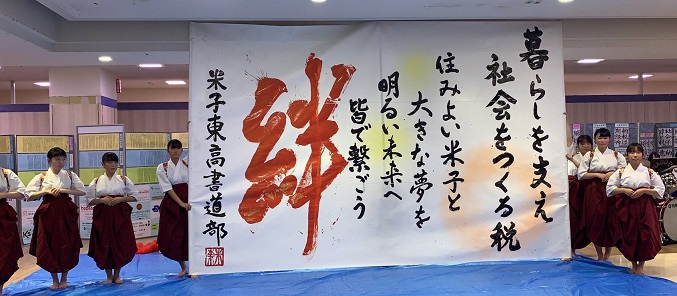 暮らしを支え
社会をつくる税
住みよい米子と
大きな夢を
明るい未来へ
皆で繋ごう
絆
米子東高書道部